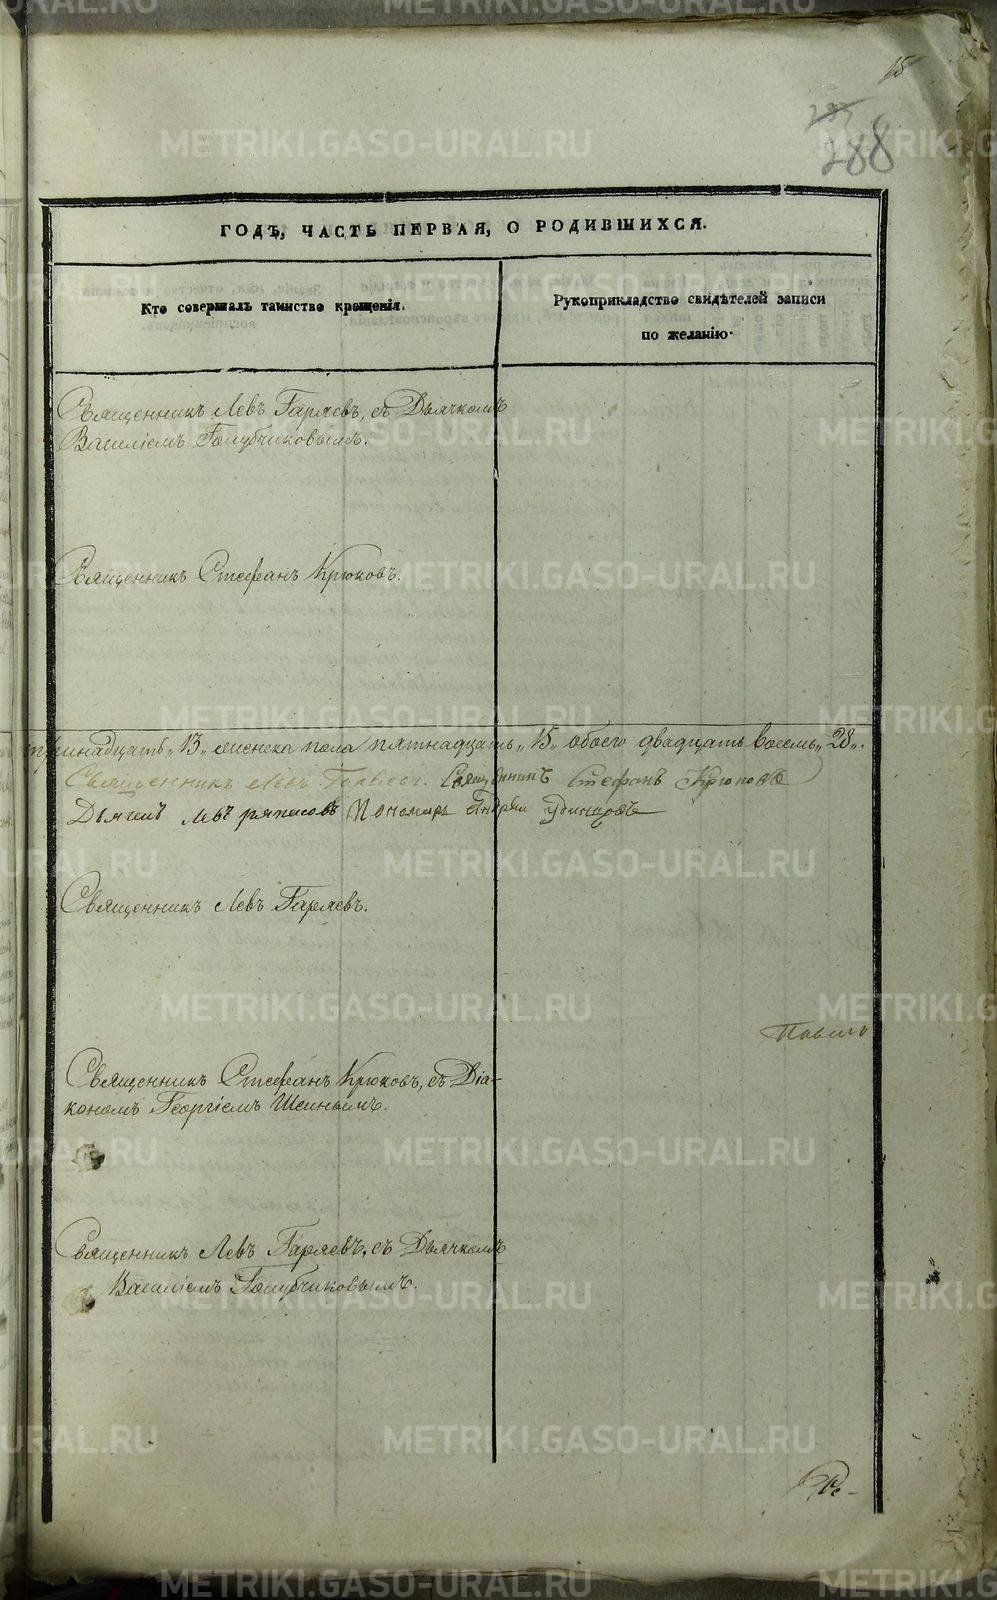 15
285
288
ГОДЪ, ЧАСТЬ ПЕРВАЯ, О РОДИВШИХСЯ.
Кто совершалъ таинство крещенія.
Рукоприкладство свидѣтелей записи
по желанію.
Священникъ Левъ Гаряевъ, съ Дьячкомъ
Василіемъ Голубчиковымъ.
Священникъ Стефанъ Крюковъ.
тринадцать „13„ женска пола пятнадцать „15„ обоего двадцать восемь „28„.
Священникъ Левъ Гаряевъ. Священникъ Стефанъ Крюковъ
Дьячекъ Левъ Пономарь Андрей
Священникъ Левъ Гаряевъ.
Священникъ Стефанъ Крюковъ, съ Діа-
кономъ Георгіемъ Шеинымъ.
Священникъ Левъ Гаряевъ, съ Дьячкомъ
Василіемъ Голубчиковымъ.
METRIKI.GASO-URAL.RU